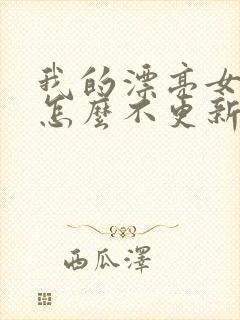 我的漂亮女
怎麼不更新
西瓜澤